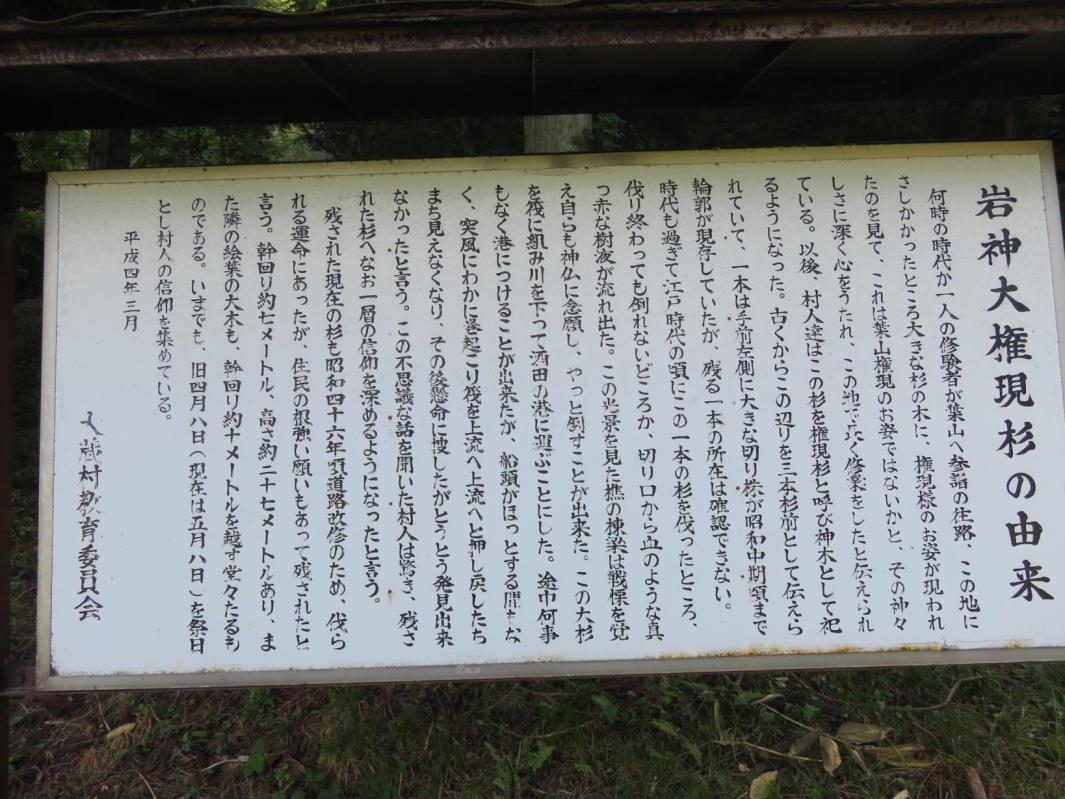 岩神大権現杉の由来
何時の時代か一人の修験者が葉山へ参詣の往路、この地に
さしかかったところ大きな杉の木に、権現様のお姿が現われ
たのを見て、これは葉山権現のお姿ではないかと、その神々
しさに深く心をうたれ、この地で長く修業をしたと伝えられ
ている。以後、村人達はこの杉を権現杉と呼び神木として祀
るようになった。古くからこの辺りを三本杉前として伝えら
れていて、一本は手前左側に大きな切り株が昭和中期頃まで
輪郭が現存していたが、残る一本の所在は確認できない。
時代も過ぎて江戸時代の頃にこの一本の杉を伐ったところ、
伐り終わっても倒れないどころか、切り口から血のような真
っ赤な樹液が流れ出た。この光景を見た樵の棟梁は戦慄を覚
え自らも神仏に念願し、やっと倒すことが出来た。この大杉
を筏に組み川を下って酒田の港に運ぶことにした。途中何事
もなく港につけることが出来たが、船頭がほっとする間もな
く、突風にわかに巻起こり筏を上流へ上流へと押し戻したち
まち見えなくなり、その後懸命に捜したがとうとう発見出来
なかったと言う。この不思議な話を聞いた村人は驚き、残さ
れた杉へなお一層の信仰を深めるようになったと言う。
残された現在の杉も昭和四十六年頃道路改修のため、伐ら
れる運命にあったが、住民の根強い願いもあって残されたと
言う。幹回り約七メートル、高さ約二十七メートルあり、ま
た隣の絵葉の大木も、幹回り約十メートルを越す堂々たるも
のである。いまでも、旧四月八日(現在は五月八日)を祭日
とし村人の信仰を集めている。
平成四年三月
大蔵村教育委員会